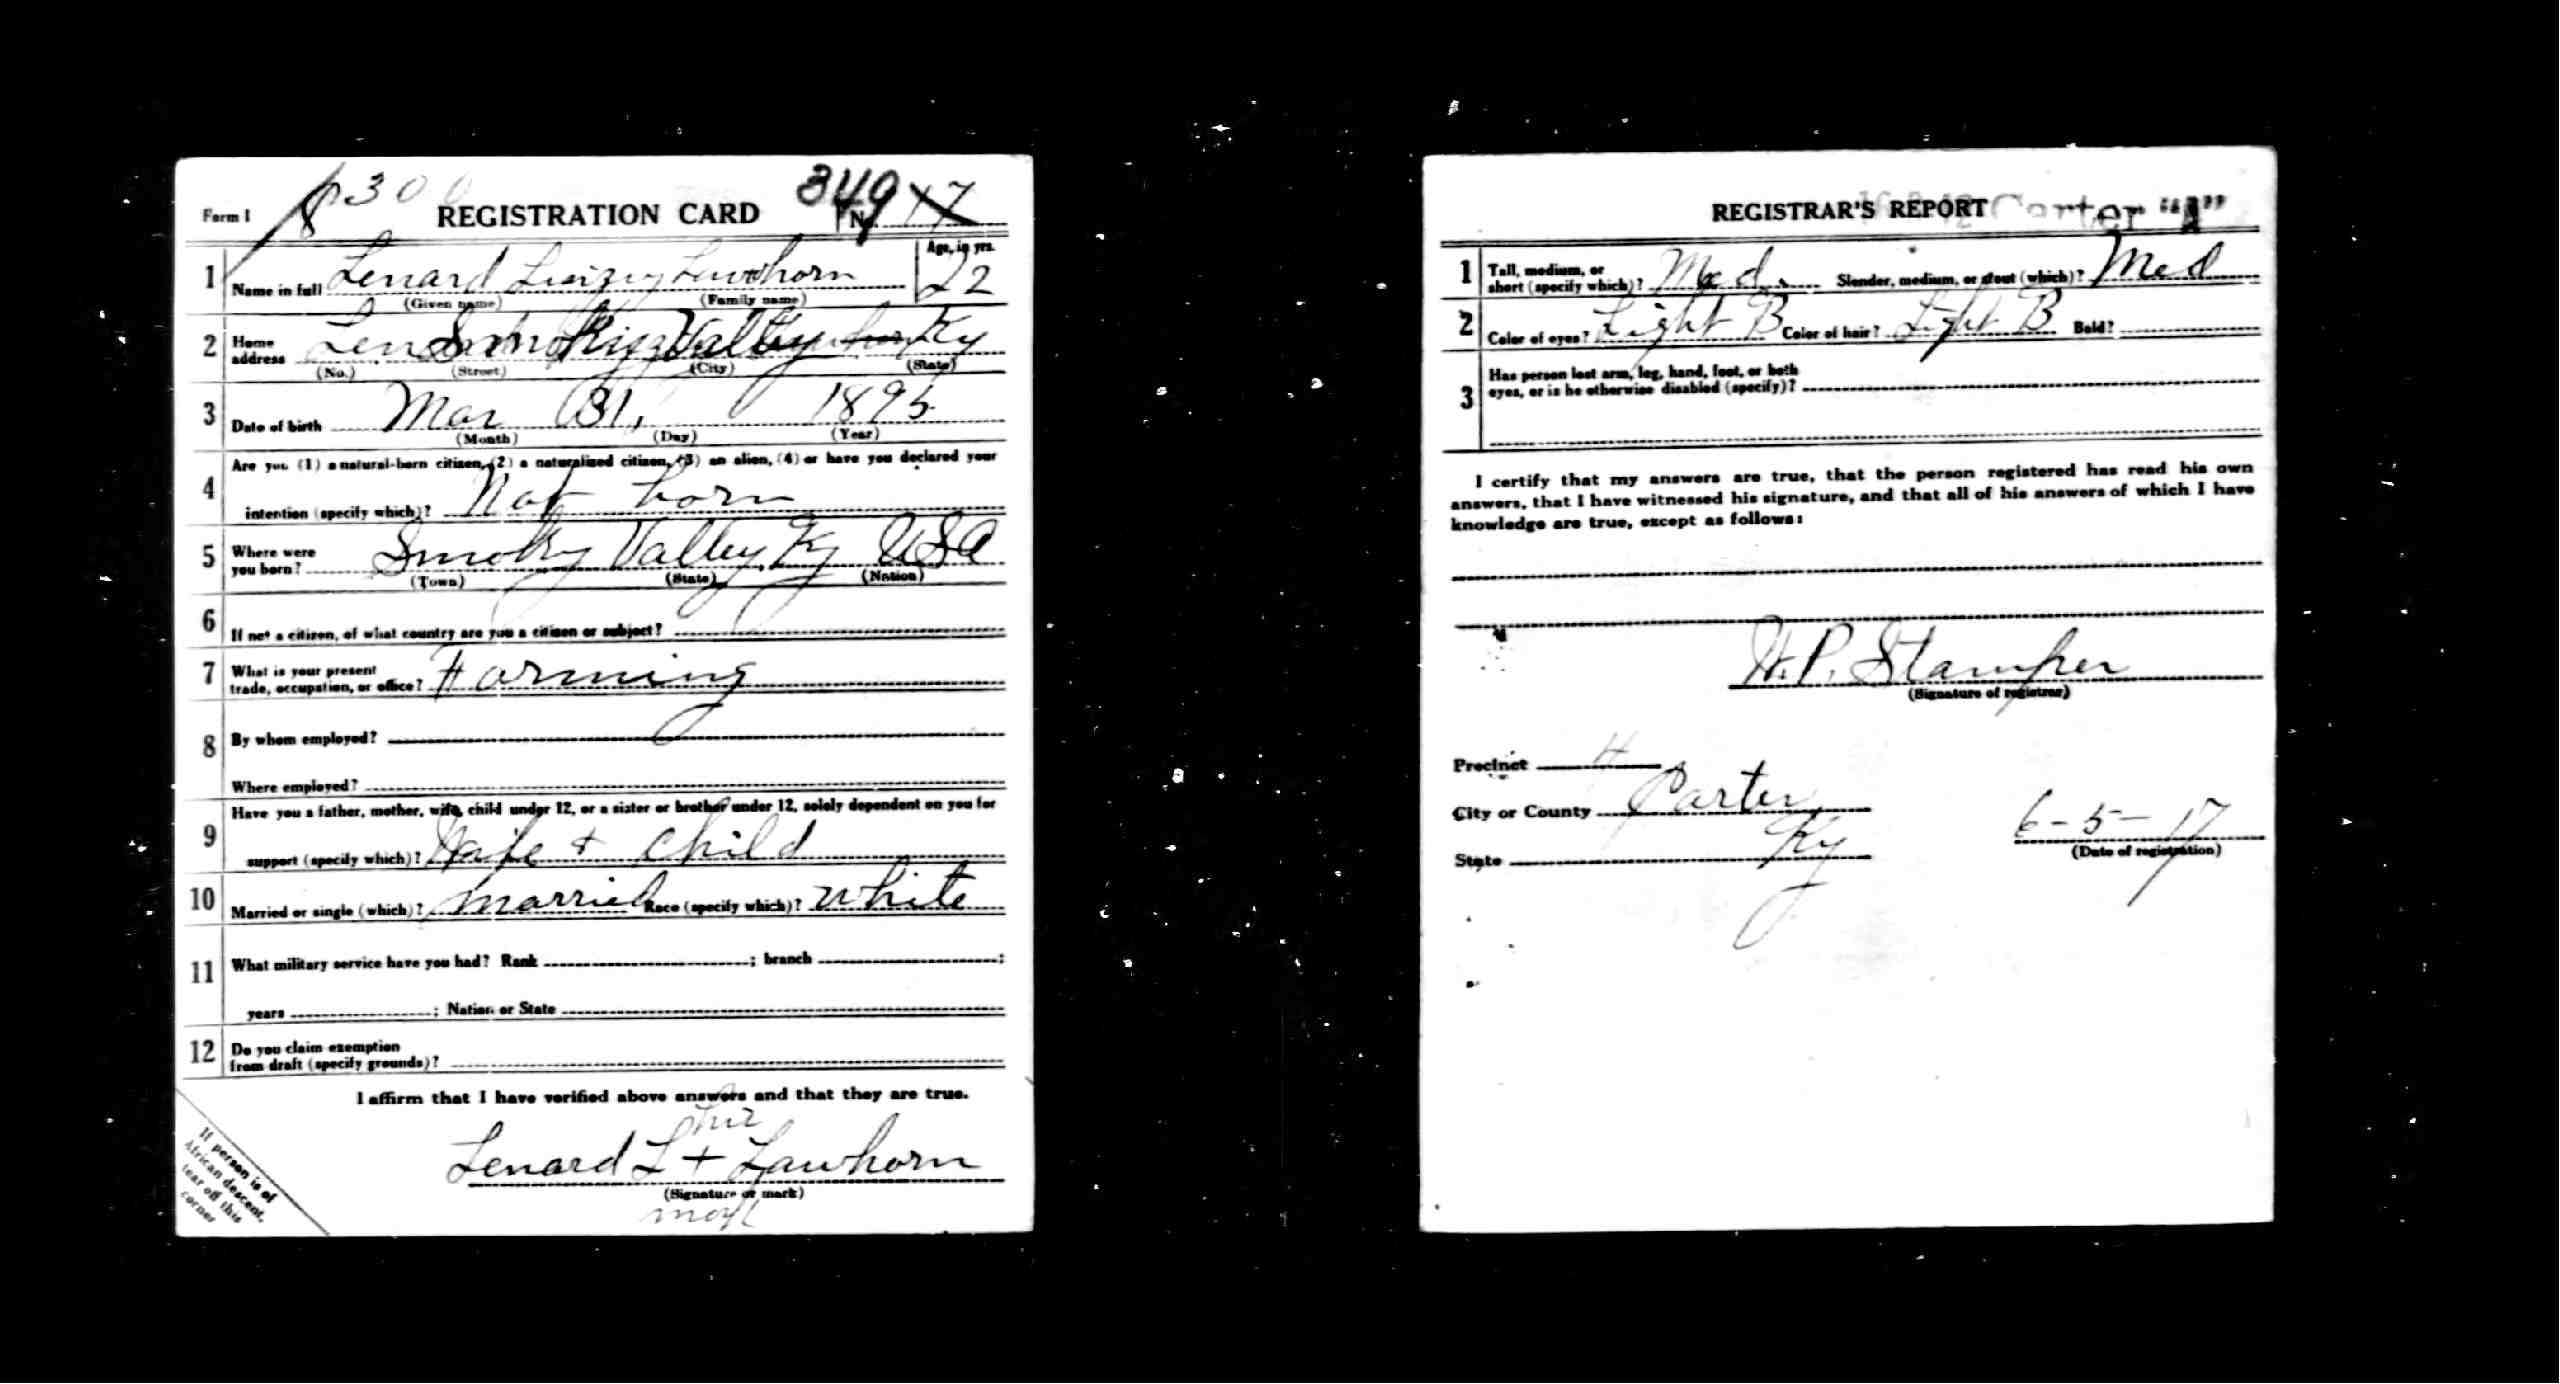 Form 1 REGISTRATION CARD 349 No. 17
1 Name in full Lenard Lawhorn Age, in yrs. 22
(Given name) (Family name)
2 Home address Smoky Valley Ky
(No.) (Street) (City) (State)
3 Date of birth Mar 31, 1895
(Month) (Day) (Year)
4 Are you (1) a natural-born citizen, (2) a naturalized citizen, (3) an alien, (4) or have you declared your
intention (specify which)? Nat born
5 Where were you born? Smoky Valley Ky USA
(Town) (State) (Nation)
6 If not a citizen, of what country are you a citizen or subject?
7 What is your present
trade, occupation, or office? Farming
8 By whom employed?
Where employed?
9 Have you a father, mother, wife, child under 12, or a sister or brother under 12, solely dependent on you for
support (specify which)? Wife + child
10 Married or single (which)? married Race (specify which)? white
11 What military service have you had? Rank ; branch ;
years ; Nation or State
12 Do you claim exemption
from draft (specify grounds)?
I affirm that I have verified above answers and that they are true.
his
Lenard L + Lawhorn
(Signature or mark)
mark
If person is of
African descent,
tear off this
corner
REGISTRAR'S REPORT Carter "A"
1 Tall, medium, or
short (specify which)? Med. Slender, medium, or stout (which)? Med
2 Color of eyes? Light B Color of hair? Light B Bald?
3 Has person lost arm, leg, hand, foot, or both
eyes, or is he otherwise disabled (specify)?
I certify that my answers are true, that the person registered has read his own
answers, that I have witnessed his signature, and that all of his answers of which I have
knowledge are true, except as follows:
H.P. Stamper
(Signature of registrar)
Precinct 4
City or County Carter
State Ky 6-5-17
(Date of registration)